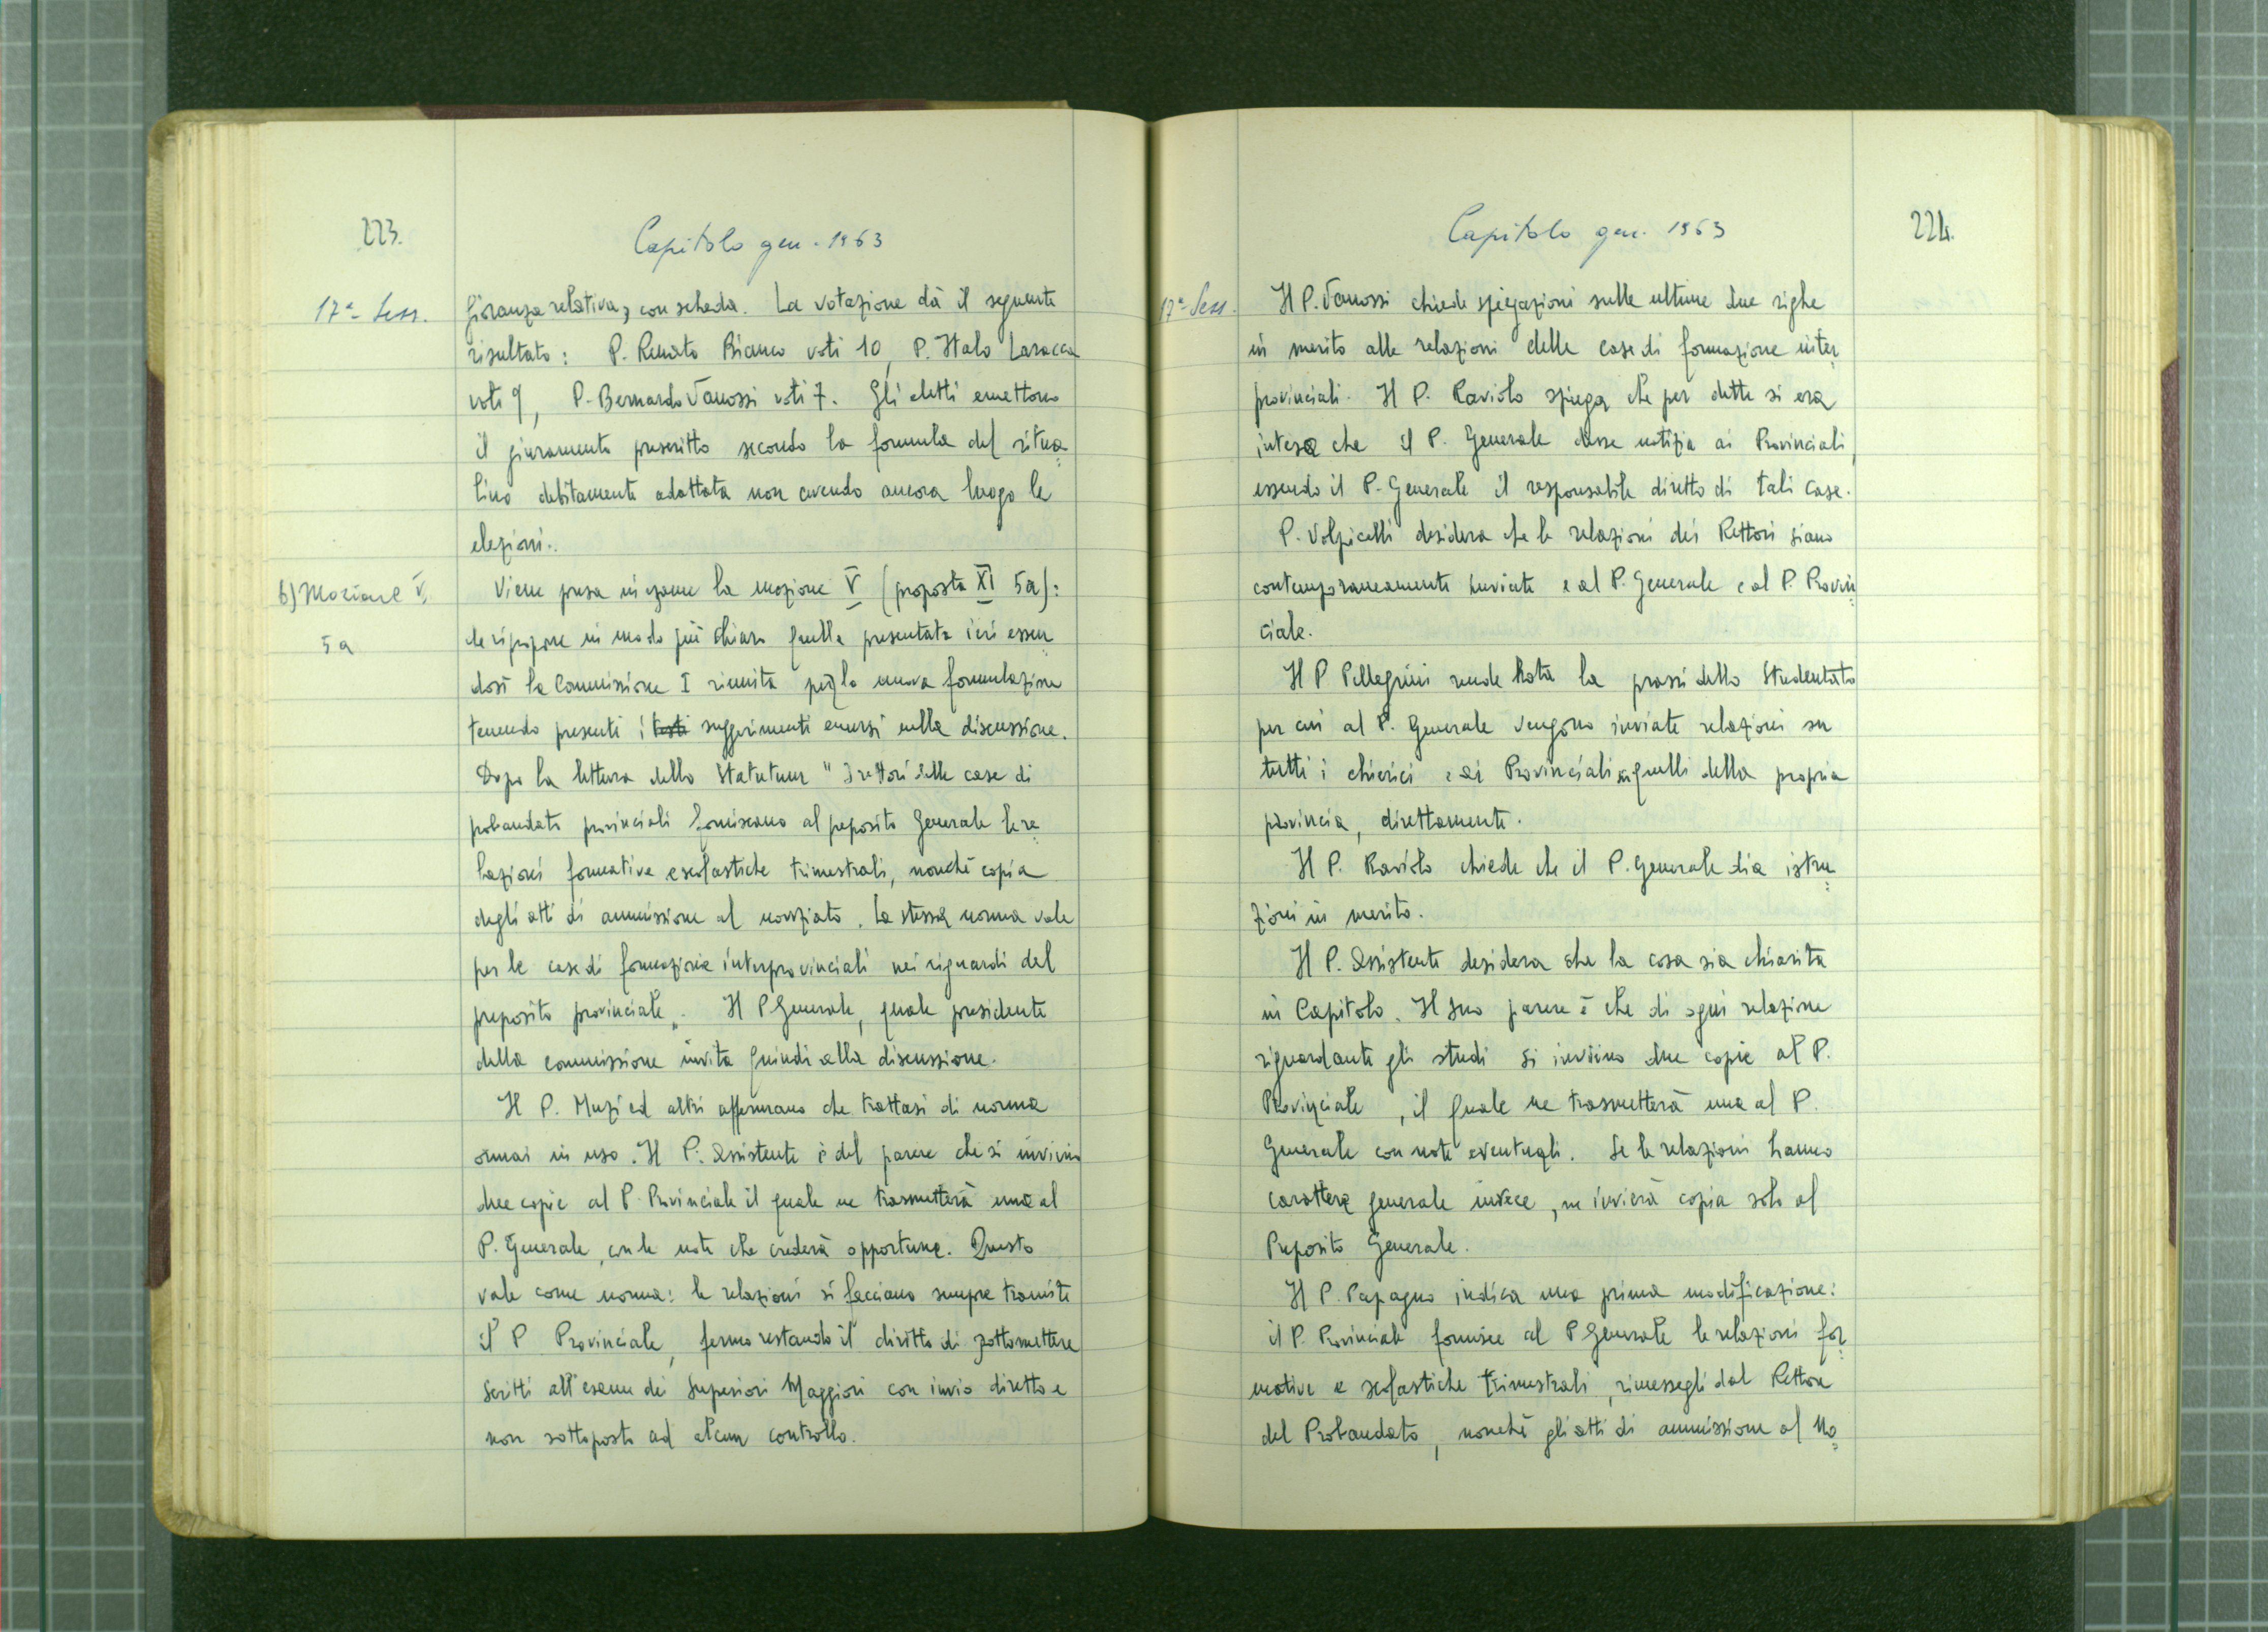 223.
Capitolo gen. 1963
17ª Sess.
gioranza relativa, con scheda. La votazione dà il seguente
risultato: P. Renato Bianco voti 10, P. Italo Laracca
voti 9, P. Bernardo Vanossi voti 7. Gli eletti emettono
il giuramento prescritto secondo la formula del ritua=
lino debitamente adattata non avendo ancora luogo le
elezioni.
b) Mozione V,
5a
Viene presa in esame la mozione V (proposta XI 5a):
che ripropone in modo più chiaro quella presentata ieri essen=
dosi la Commissione I riunita per la nuova formulazione
tenendo presenti i testi suggerimenti emersi nella discussione.
Dopo la lettura dello Statutum "I rettori delle case di
probandato provinciali forniscano al preposito Generale le re=
lazioni formative e scolastiche trimestrali, nonchè copia
degli atti di ammissione al noviziato. La stessa norma vale
per le case di formazione interprovinciali nei riguardi del
preposito provinciale". Il P Generale, quale presidente
della commissione invita quindi alla discussione.
Il P. Muzi ed altri affermano che trattasi di norma
ormai in uso. Il P. Assistente è del parere che si inviino
due copie al P. Provinciale il quale ne trasmetterà una al
P. Generale, con le note che crederà opportune. Questo
vale come norma: le relazioni si facciano sempre tramite
il P Provinciale, fermo restando il diritto di sottomettere
scritti all'esame dei Superiori Maggiori con invio diretto e
non sottoposto ad alcun controllo.
224.
Capitolo gen. 1963
17ª Sess.
Il P. Vanossi chiede spiegazioni sulle ultime due righe
in merito alle relazioni delle case di formazione inter=
provinciali. Il P. Raviolo spiega che per dette si era
inteso che il P. Generale desse notizia ai Provinciali,
essendo il P. Generale il responsabile diretto di tali case.
P. Volpicelli desidera che le relazioni dei Rettori siano
contemporaneamente inviate e al P. Generale e al P. Provin=
ciale.
Il P Pellegrini rende nota la prassi dello Studentato
per cui al P. Generale vengono inviate relazioni su
tutti i chierici e ai Provinciali quelli della propria
provincia, direttamente.
Il P. Raviolo chiede che il P. Generale dia istru=
zioni in merito.
Il P. Assistente desidera che la cosa sia chiarita
in Capitolo. Il suo parere è che di ogni relazione
riguardante gli studi si inviino due copie al P.
Provinciale, il quale ne trasmetterà una al P.
Generale con note eventuali. Se le relazioni hanno
carattere generale invece, ne invierà copia solo al
Preposito Generale.
Il P. Papagno indica una prima modificazione:
il P. Provinciale fornisce al P Generale le relazioni for=
mative e scolastiche trimestrali, rimessegli dal Rettore
del Probandato, nonchè gli atti di ammissione al No=